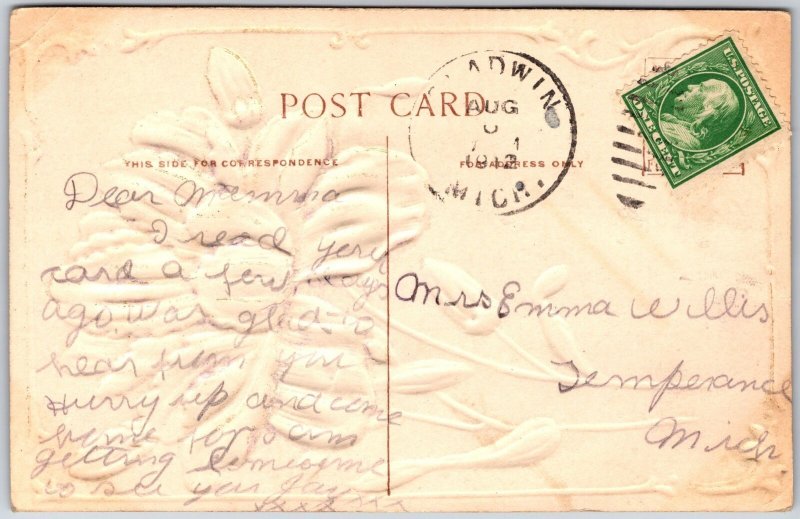 POST CARD
THIS SIDE FOR CORRESPONDENCE
FOR ADDRESS ONLY
U.S. POSTAGE
ONE CENT
LADWIN
AUG
MICH.
Dear Mamma
I read yery
card a few days
ago. was glad to
hear from you
Hurry up and come
home for I am
getting lonesome
to see you
xxxx xx
Mrs Emma Willis
Temperance
Mich